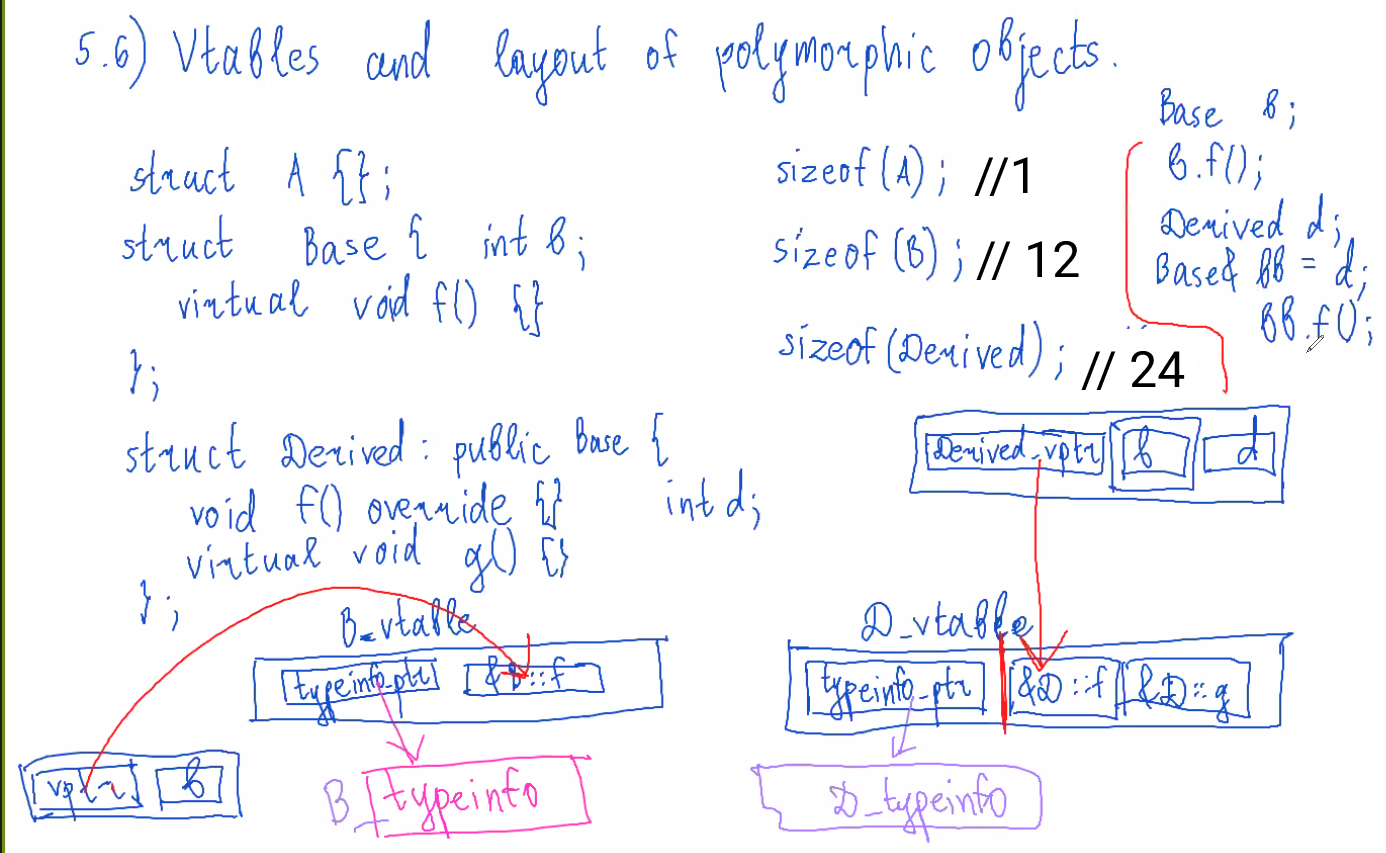 5.6) Vtables and layout of polymorphic objects.
struct A {};
struct Base { int b;
virtual void f() {}
};
struct Derived : public Base {
void f() override {} int d;
virtual void g() {}
};
sizeof(A); //1
sizeof(B); // 12
sizeof(Derived); // 24
Base b;
b.f();
Derived d;
Base& bb = d;
bb.f();
Derived_vptr b d
B_vtable
typeinfo_ptr &B::f
vptr b
B_typeinfo
D_vtable
typeinfo_ptr &D::f &D::g
D_typeinfo